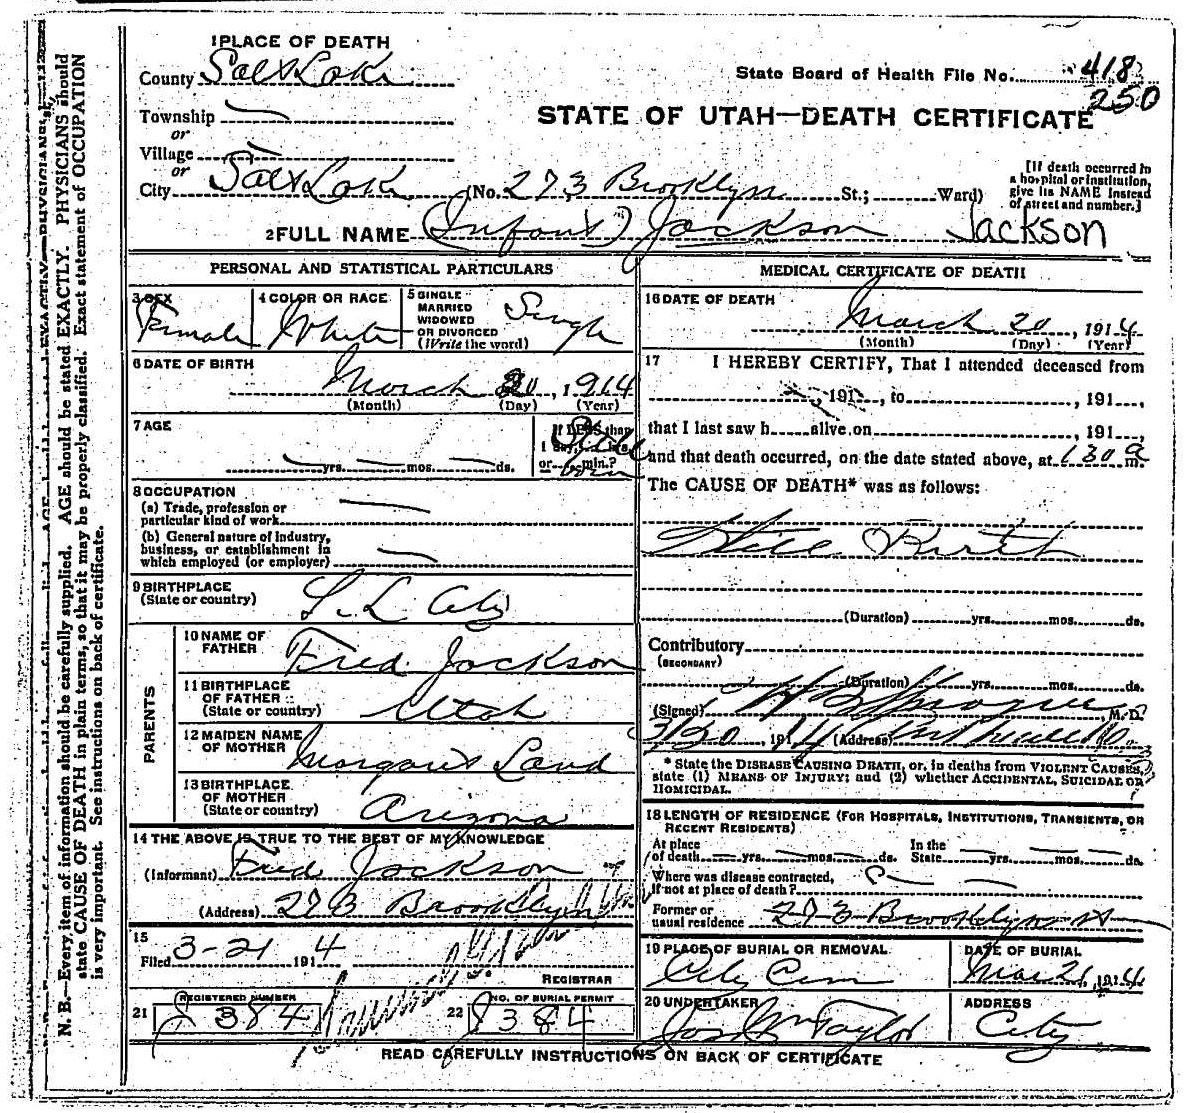 1 PLACE OF DEATH
County Salt Lake
State Board of Health File No. 418
250
STATE OF UTAH—DEATH CERTIFICATE
Township —
or
Village —
or
City Salt Lake (No. 273 Brooklyn St.; Ward)
[If death occurred in
a hospital or institution,
give its NAME instead
of street and number.]
2 FULL NAME (Infant) Jackson Jackson
PERSONAL AND STATISTICAL PARTICULARS
3 SEX Female
4 COLOR OR RACE White
5 SINGLE
MARRIED
WIDOWED
OR DIVORCED
(Write the word) Single
6 DATE OF BIRTH
March 20, 1914
(Month) (Day) (Year)
7 AGE
— yrs. — mos. — ds.
If LESS than
1 day, hrs.
or min.?
Still born
8 OCCUPATION
(a) Trade, profession or
particular kind of work —
(b) General nature of industry,
business, or establishment in
which employed (or employer) —
9 BIRTHPLACE
(State or country) S. L. City
PARENTS
10 NAME OF
FATHER Fred Jackson
11 BIRTHPLACE
OF FATHER
(State or country) Utah
12 MAIDEN NAME
OF MOTHER
13 BIRTHPLACE
OF MOTHER
(State or country) Arizona
14 THE ABOVE IS TRUE TO THE BEST OF MY KNOWLEDGE
(Informant) Fred Jackson
(Address) 273 Brooklyn
15
Filed 3-21 1914
REGISTRAR
21 REGISTERED NUMBER 384
22 NO. OF BURIAL PERMIT 384
MEDICAL CERTIFICATE OF DEATH
16 DATE OF DEATH
March 20, 1914
(Month) (Day) (Year)
17 I HEREBY CERTIFY, That I attended deceased from
, 191 , to , 191 ,
that I last saw h alive on , 191 ,
and that death occurred, on the date stated above, at 130 a m.
The CAUSE OF DEATH* was as follows:
Still Birth
(Duration) yrs. mos. ds.
Contributory
(SECONDARY)
(Duration) yrs. mos. ds.
(Signed) H B Sprague, M.D.
3/20, 1914 (Address)
* State the DISEASE CAUSING DEATH, or, in deaths from VIOLENT CAUSES,
state (1) MEANS OF INJURY; and (2) whether ACCIDENTAL, SUICIDAL OR
HOMICIDAL.
18 LENGTH OF RESIDENCE (FOR HOSPITALS, INSTITUTIONS, TRANSIENTS, OR
RECENT RESIDENTS)
At place
of death — yrs. — mos. — ds. In the
State — yrs. — mos. — ds.
Where was disease contracted,
if not at place of death?
Former or
usual residence 273 Brooklyn st
19 PLACE OF BURIAL OR REMOVAL
City Cem
DATE OF BURIAL
Mar 21, 1914
20 UNDERTAKER
Jos Wm Taylor
ADDRESS
City
READ CAREFULLY INSTRUCTIONS ON BACK OF CERTIFICATE
N. B.—Every item of information should be carefully supplied. AGE should be stated EXACTLY. PHYSICIANS should
state CAUSE OF DEATH in plain terms, so that it may be properly classified. Exact statement of OCCUPATION
is very important. See instructions on back of certificate.